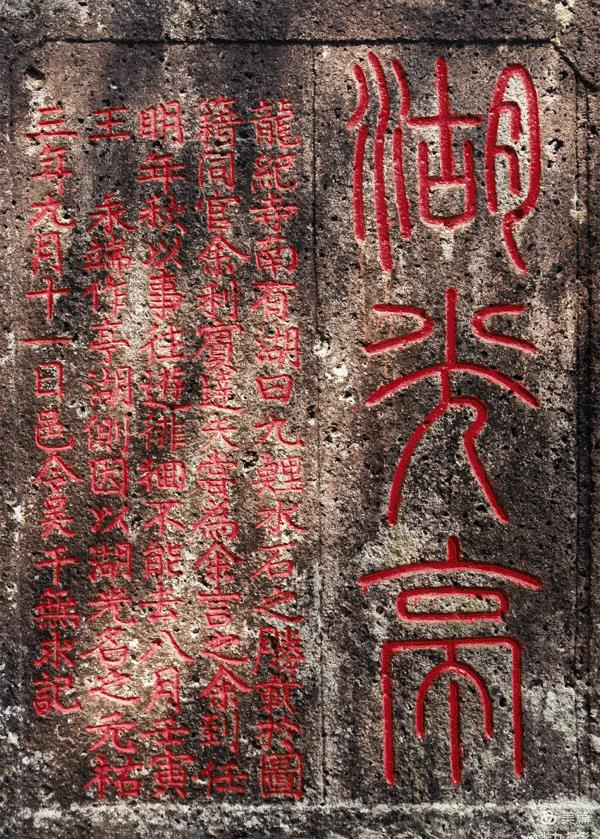 湖光亭
龍紀寺南有湖曰九鯉水石之勝載於圖
籍同官余利賓達夫嘗為余言之余到任
明年秋以事往遊徘徊不能去八月壬寅
王永端作亭湖側因以湖光名之元祐
三年九月十一日邑令吳千無水記
美篇